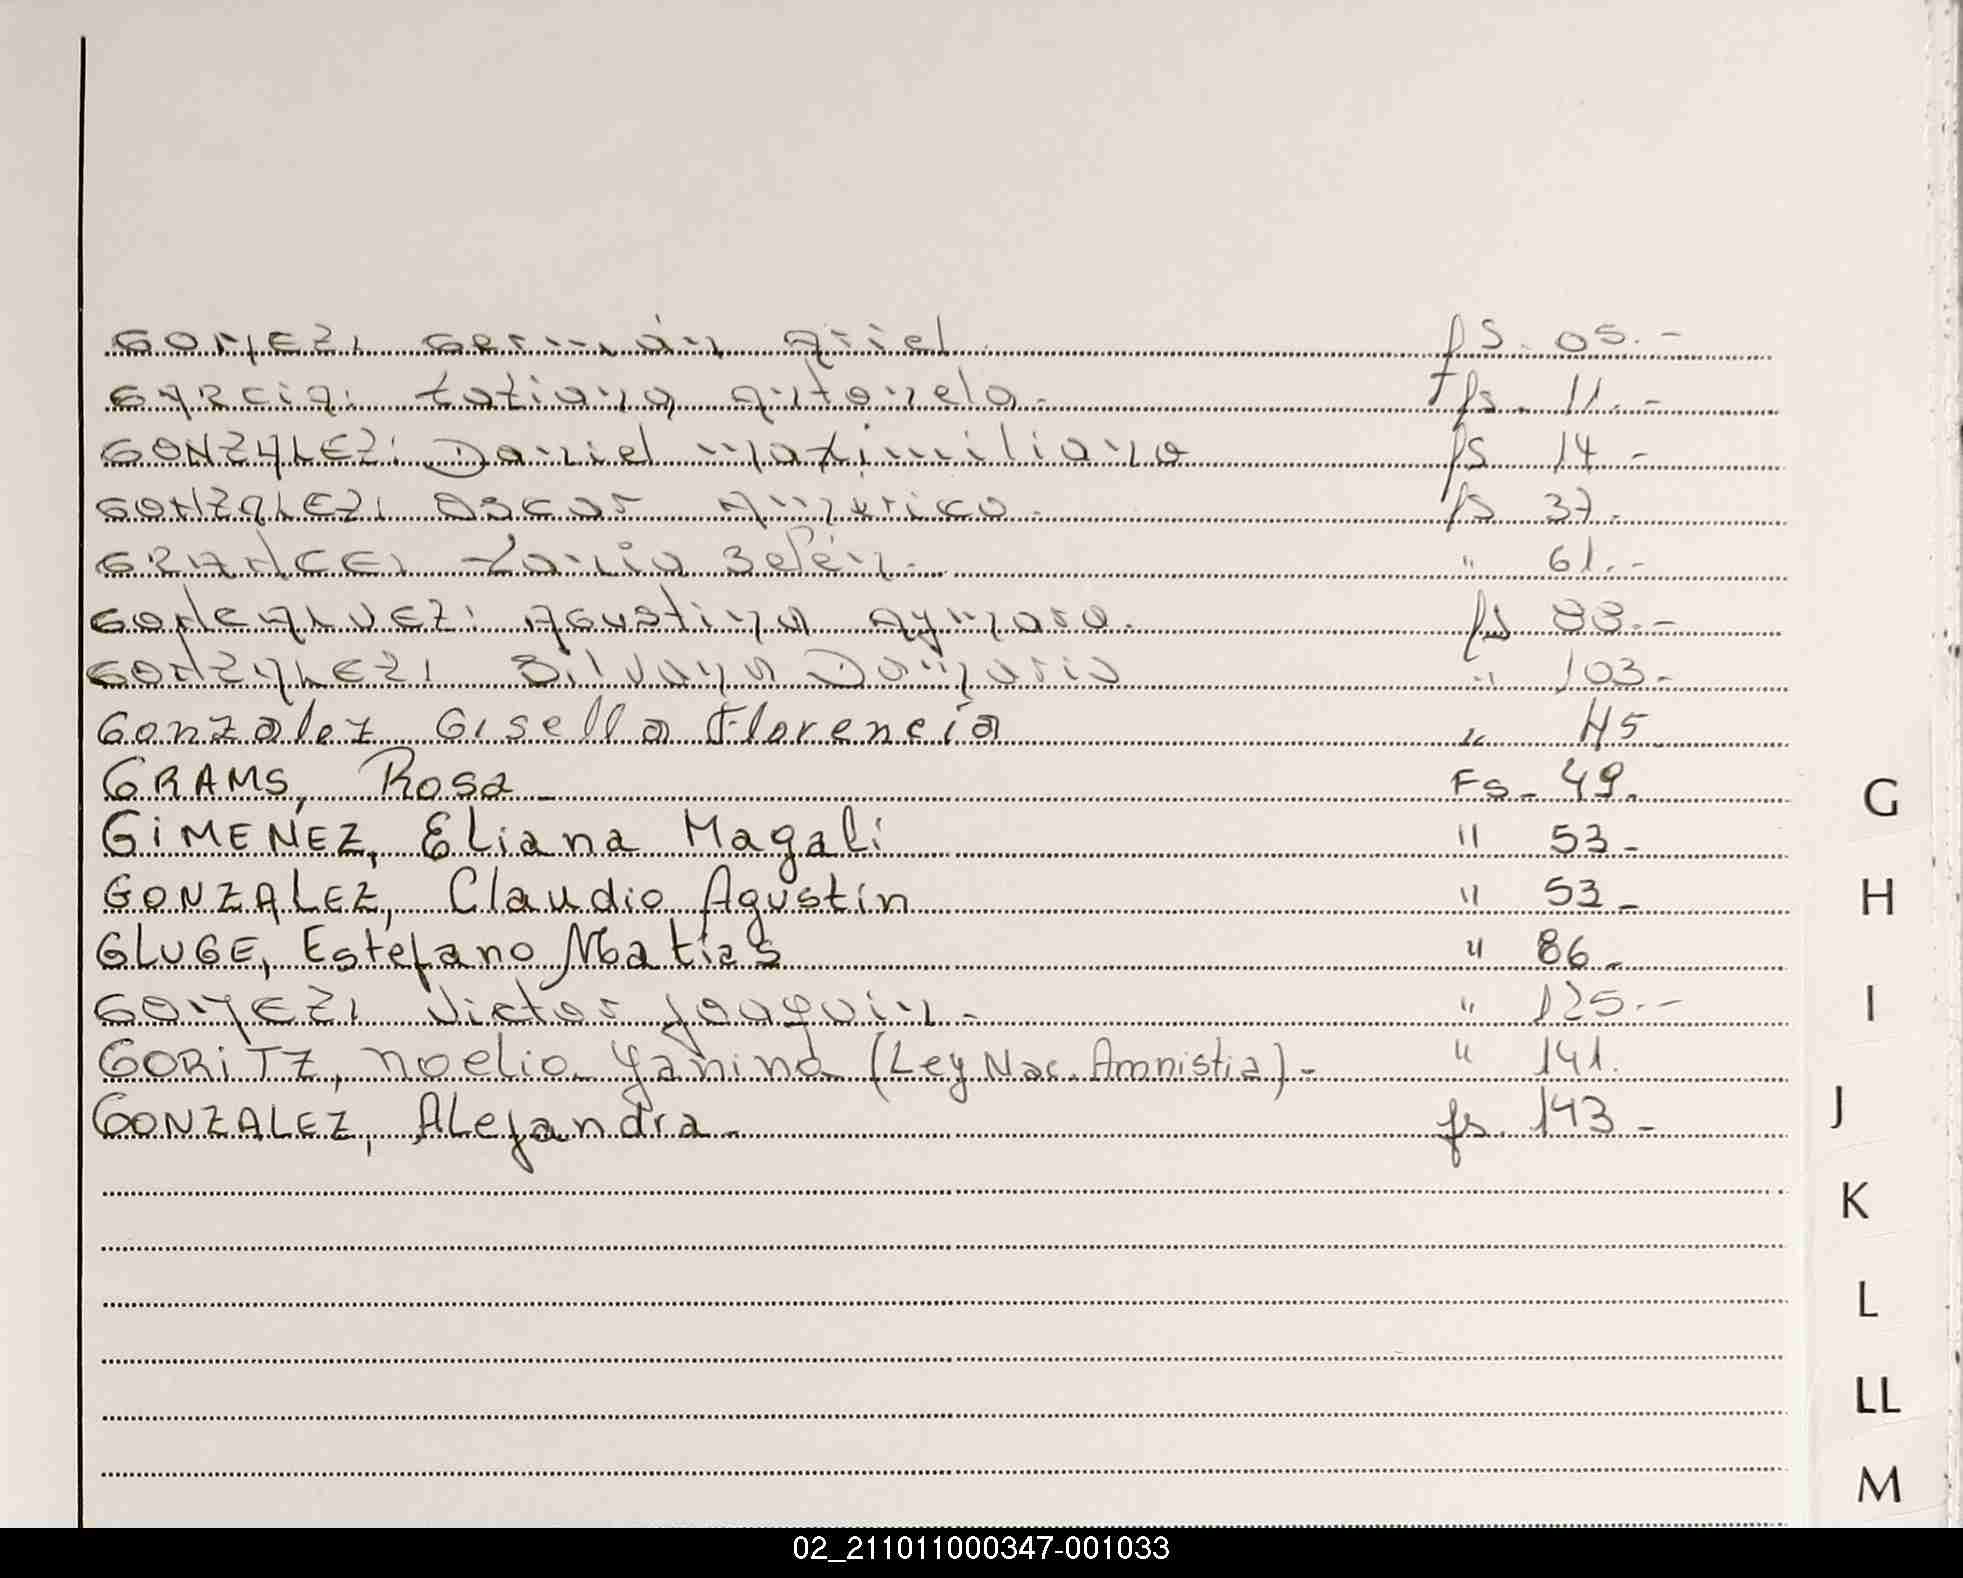 GOMEZ, Germán Ariel fs. 05.-
GARCIA, tatiana Antonela.- fs. 11.-
GONZALEZ, Daniel Maximiliano fs 14-
GONZALEZ, Oscar Américo. fs 37.
GRANCE, Tania Belén.- " 61.-
GONCALVEZ, Agustina Aymara. fs 88.-
GONZALEZ, Silvana Damaris " 103.-
Gonzalez Gisella Florencia " 45
GRAMS, Rosa - Fs- 49.
GiMENEZ, Eliana Magali " 53-
GONZALEZ, Claudio Agustín " 53-
GLUGE, Estefano Matias " 86-
GOMEZ, Victor Joaquin. " 125.-
GORiTZ, Noelia Yanina (Ley Nac. Amnistia)- " 141.
GONZALEZ, Alejandra- fs. 143-
G
H
I
J
K
L
LL
M
02_211011000347-001033